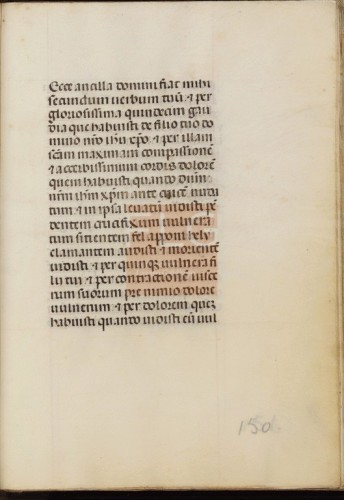 Ecce ancilla domini fiat mihi
secundum uerbum tuū. & per
gloriosissima quindecim gau
dia que habuisti de filio tuo do
mino nr̄o ihū xp̄o. & per illam
sc̄am maximam compassionē
& acerbissimum cordis dolorē
quem habuisti quando dn̄m
nr̄m ih̄m xp̄m ante crucē nuda
tum & in ipsa leuatū uidisti pē
dentem crucifixum uulnera
tum sitientem fel apponi hely
clamantem audisti & morientē
uidisti & per quinque uulnera fi
lii tui & per contractionē uisce
rum suorum pre nimio dolore
uulnerum & per dolorem quem
habuisti quando uidisti eū uul
150